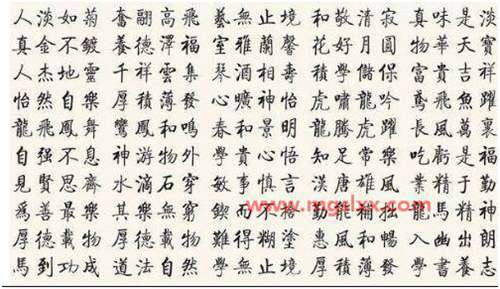 人淡如菊 奮翮高飛 藝無止境 和敬清寂 真味是淡
真金不鍍 養德澤福 室雅蘭馨 花好月圓 物華天寶
人杰地靈 千祥雲集 琴酒相壽 積學儲保 富貴吉祥
怡然自樂 厚積薄發 心曠神怡 虎嘯龍吟 鳶飛魚躍
龍飛鳳舞 鸞鳳和鳴 春和景明 龍騰虎躍 長風萬裏
自强不息 神游物外 學貴心悟 知足常樂 吃虧是福
見賢思齊 水滴石穿 敏事慎言 漢唐雄風 業精于勤
爲善最樂 其樂無窮 鍥而不 勤能補拙 龍馬精神
厚德載物 厚德載物 難得糊塗 惠風和暢
馬到功成 道法自然 學無止境 厚積薄發